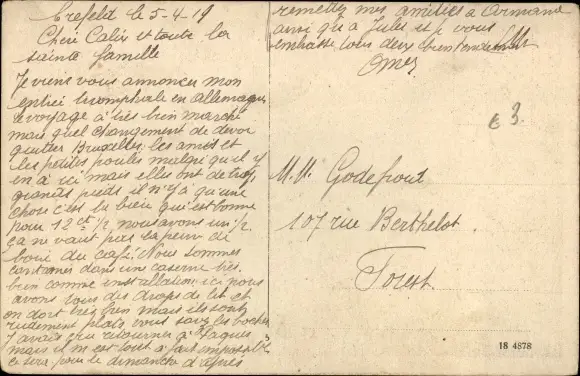 Crefeld le 5-4-19
Cher Calix et toute la
sainte famille
Je viens vous annoncer mon
entrée triomphale en Allemagne
le voyage à très bien marché
mais quel changement de devoir
quitter Bruxelles, les amis et
les petites poules malgré qu'il y
en à ici mais elle ont de trop
grands pieds il n'y à qu'une
chose c'est la bière qui est bonne
pour 12 ct 1/2 nous avons un 1/2
ça ne vaut pas la peine de
boire du café. Nous sommes
dans une caserne très
bien comme installation, ici nous
avons tous des draps de lit et
on dort très bien mais ils sont
rudement plats vous savez les boches
J'avais cru retourner à Pâques
mais il m'est tout à fait impossible
ce sera pour le dimanche d'après
remettez mes amitiés à Armand
ainsi qu'a Jules et je vous
embrasse tous deux bien
Omer
63.
M. M. Godefrout
107 rue Berthelot
Forest.
18 4878